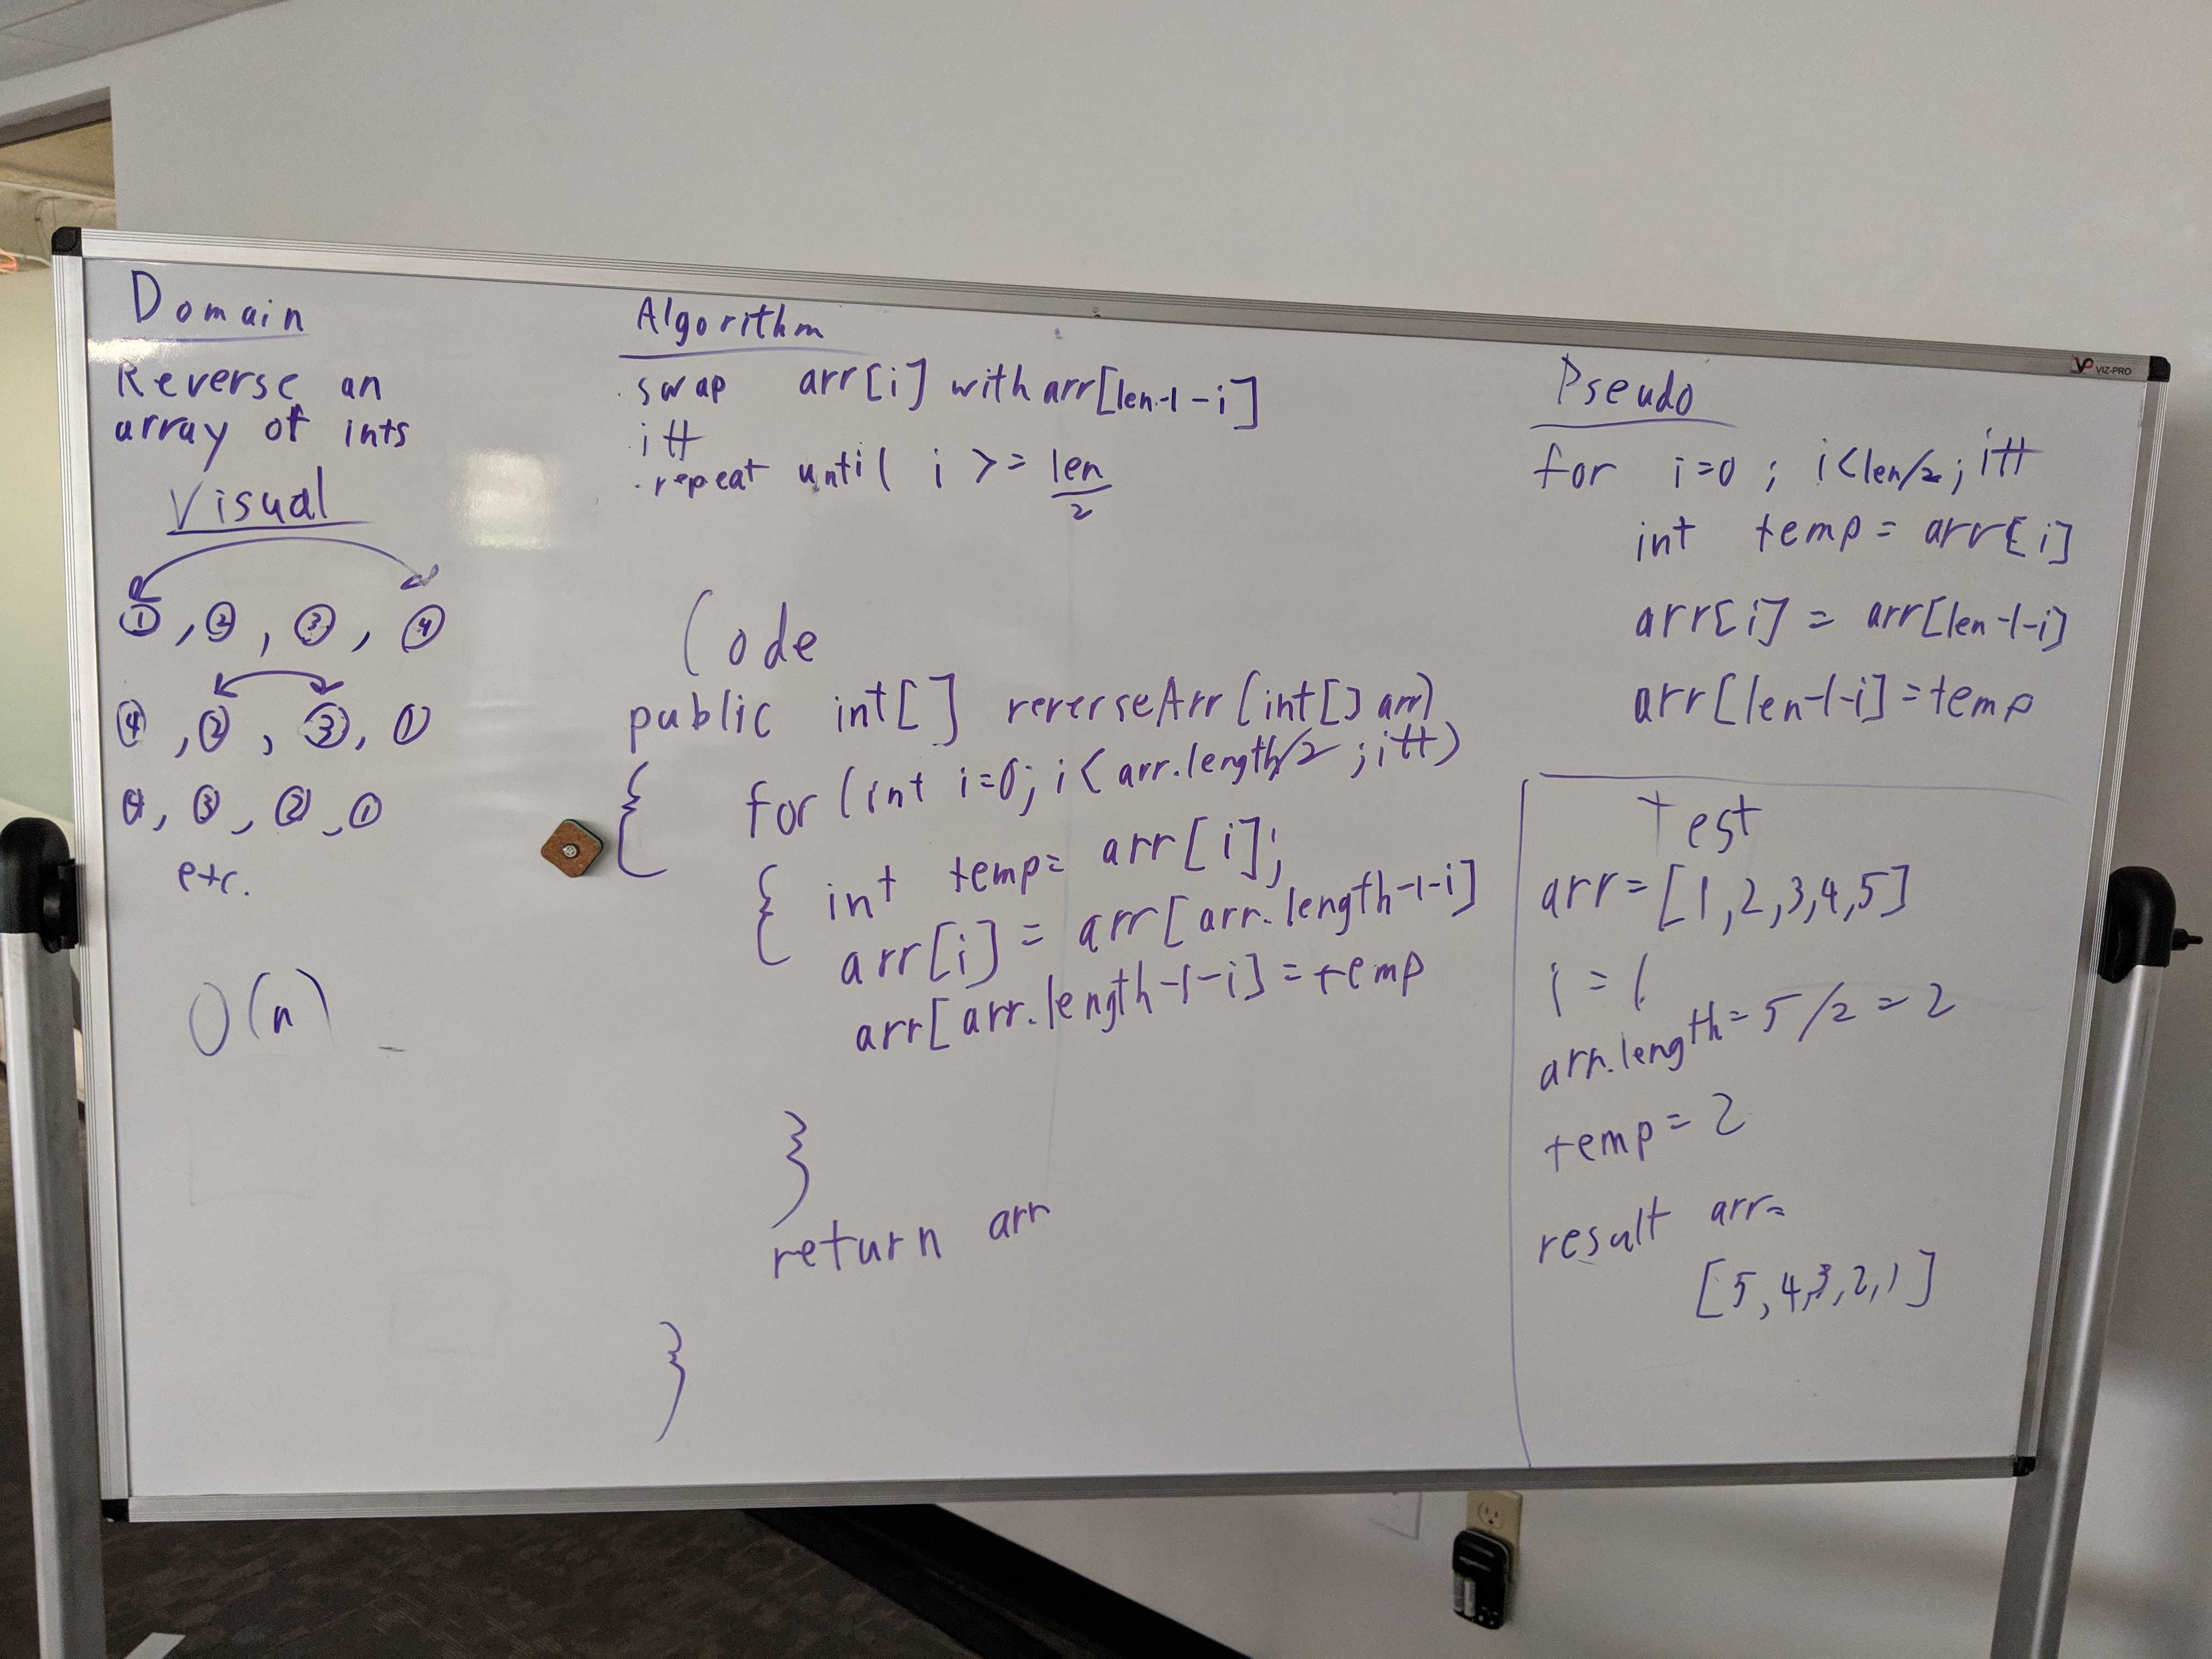 Domain
Reverse an
array of ints
Visual
1, 2, 3, 4
4, 2, 3, 1
4, 3, 2, 1
etc.
O(n)
Algorithm
. swap arr[i] with arr[len-1-i]
. i++
. repeat until i >= len
2
Code
public int[] reverseArr(int[] arr)
{ for (int i=0; i< arr.length/2 ; i++)
{ int temp= arr[i];
arr[i] = arr[arr.length-1-i]
arr[arr.length-1-i] = temp
}
return arr
}
VP VIZ-PRO
Pseudo
for i=0 ; i<len/2 ; i++
int temp = arr[i]
arr[i] = arr[len-1-i]
arr[len-1-i] = temp
Test
arr = [1,2,3,4,5]
i = 1
arr.length = 5/2 = 2
temp = 2
result arr=
[5,4,3,2,1]